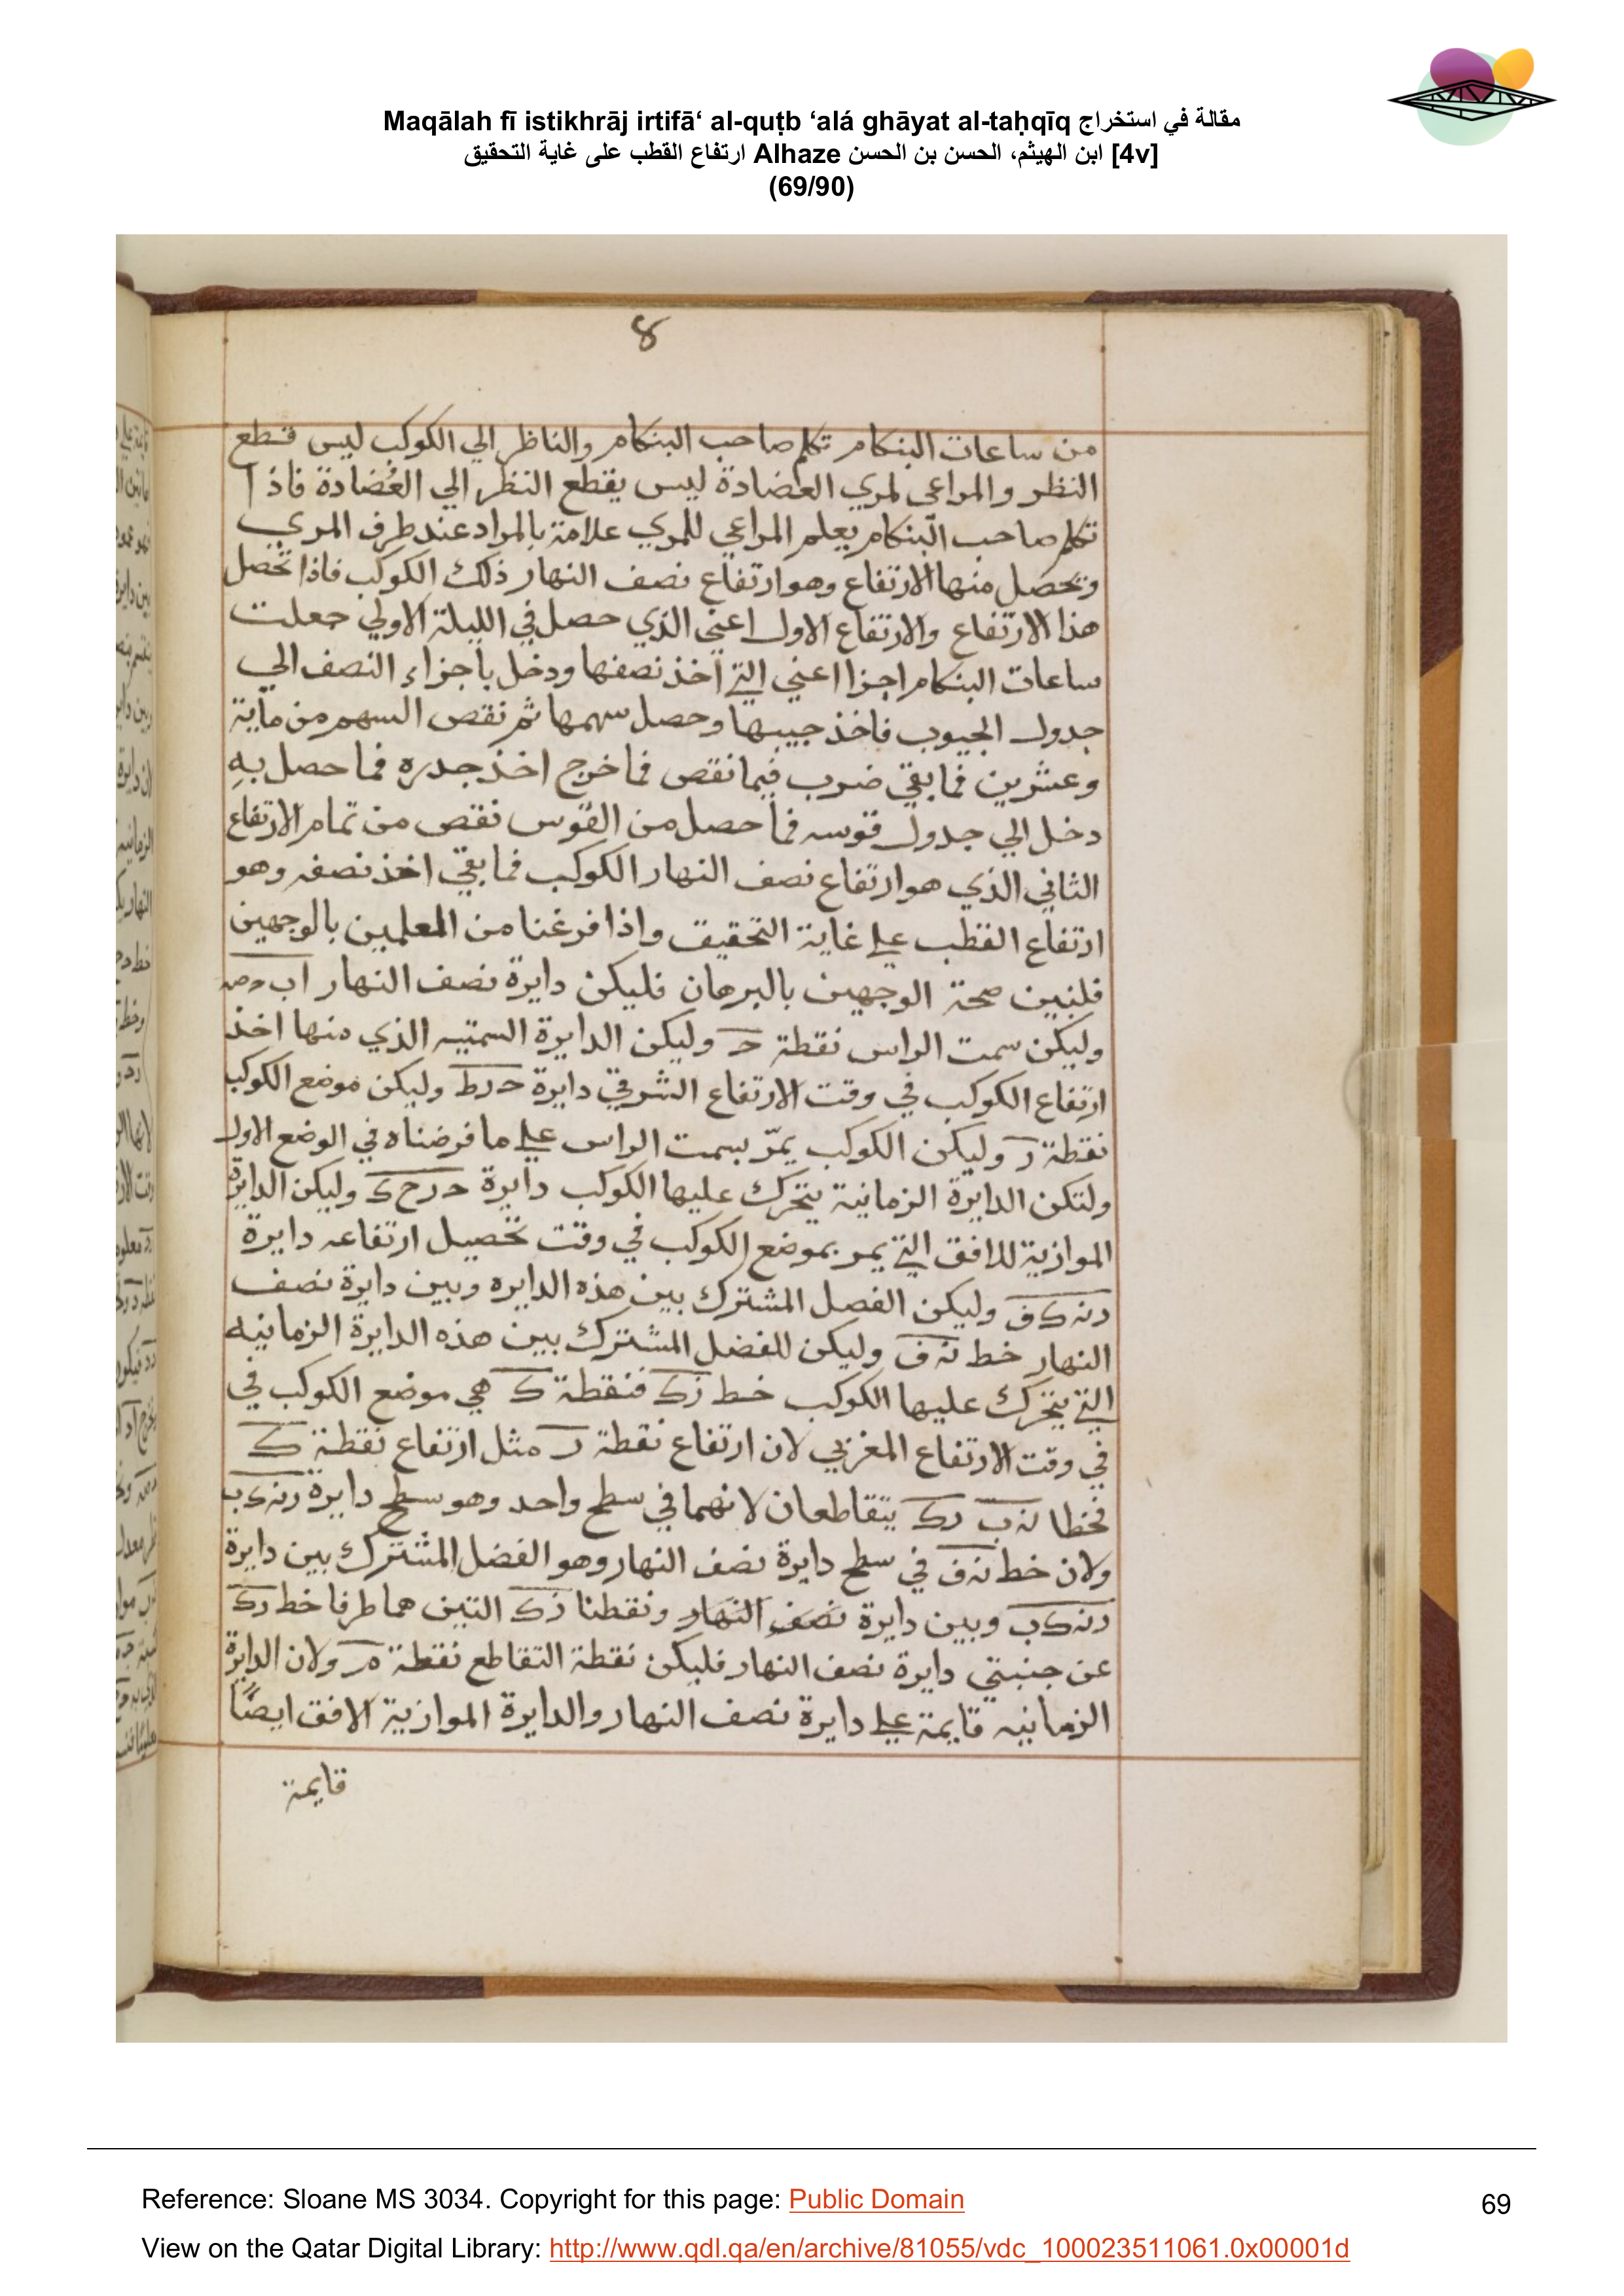 Maqālah fī istikhrāj irtifā‘ al-quṭb ‘alá ghāyat al-taḥqīq مقالة في استخراج
ارتفاع القطب على غاية التحقيق Alhaze ابن الهيثم، الحسن بن الحسن [4v]
(69/90)
8
من ساعات البنكام تكلم صاحب البنكام والناظر الي الكوكب ليس قطع
النظر والمراعي لمري العضادة ليس يقطع النظر الي العُضادة فاذا
تكلم صاحب البنكام يعلم المراعي للمري علامة بالمراد عند طرف المري
وتحصل منها الارتفاع وهو ارتفاع نصف النهار ذلك الكوكب فاذا تحصل
هذا الارتفاع والارتفاع الاول اعني الذي حصل في الليلة الاولي جعلت
ساعات البنكام اجزا اعني التي اخذ نصفها ودخل بأجزاء النصف الي
جدول الجيوب فاخذ جيبها وحصل سهمها ثم نقص السهم من ماية
وعشرين فما بقي ضرب فيما نقص فما خرج اخذ جدره فما حصل بهِ
دخل الي جدول قوسه فما حصل من القوس نقص من تمام الارتفاع
الثاني الذي هو ارتفاع نصف النهار الكوكب فما بقي اخذ نصفه وهو
ارتفاع القطب علي غاية التحقيق واذا فرغنا من المعلمين بالوجهين
فلنبين صحة الوجهين بالبرهان فليكن دايرة نصف النهار
وليكن سمت الراس نقطة حـ وليكن الدايرة السمتيه الذي منها اخذ
ارتفاع الكوكب في وقت الارتفاع الشرقي دايرة حرط وليكن موضع الكوكب
نقطة ر وليكن الكوكب يمرّ بسمت الراس علي ما فرضناه في الوضع الاول
ولتكن الدايرة الزمانية يتحرك عليها الكوكب دايرة حرح ك وليكن الدايرة
الموازية للافق التي يمر بموضع الكوكب في وقت تحصيل ارتفاعه دايرة
رنه ك ف وليكن الفصل المشترك بين هذه الدايره وبين دايرة نصف
النهار خط نه ف وليكن للفضل المشترك بين هذه الدايرة الزمانيه
التي يتحرك عليها الكوكب خط زك فنقطة ك هي موضع الكوكب في
في وقت الارتفاع المغربي لان ارتفاع نقطة ر مثل ارتفاع نقطة ك
فخطا نه ب رك يتقاطعان لانهما في سطح واحد وهو سطح دايرة رنه ك ب
ولان خط نه ف في سطح دايرة نصف النهار وهو الفضل المشترك بين دايرة
رنه ك ب وبين دايرة نصف النهار ونقطتا زك التين هما طرفا خط رك
عن جنبتي دايرة نصف النهار فليكن نقطة التقاطع نقطة م ولان الدايرة
الزمانيه قايمة علي دايرة نصف النهار والدايرة الموازية الافق ايضًا
قايمة
Reference: Sloane MS 3034. Copyright for this page: Public Domain
69
View on the Qatar Digital Library: http://www.qdl.qa/en/archive/81055/vdc_100023511061.0x00001d